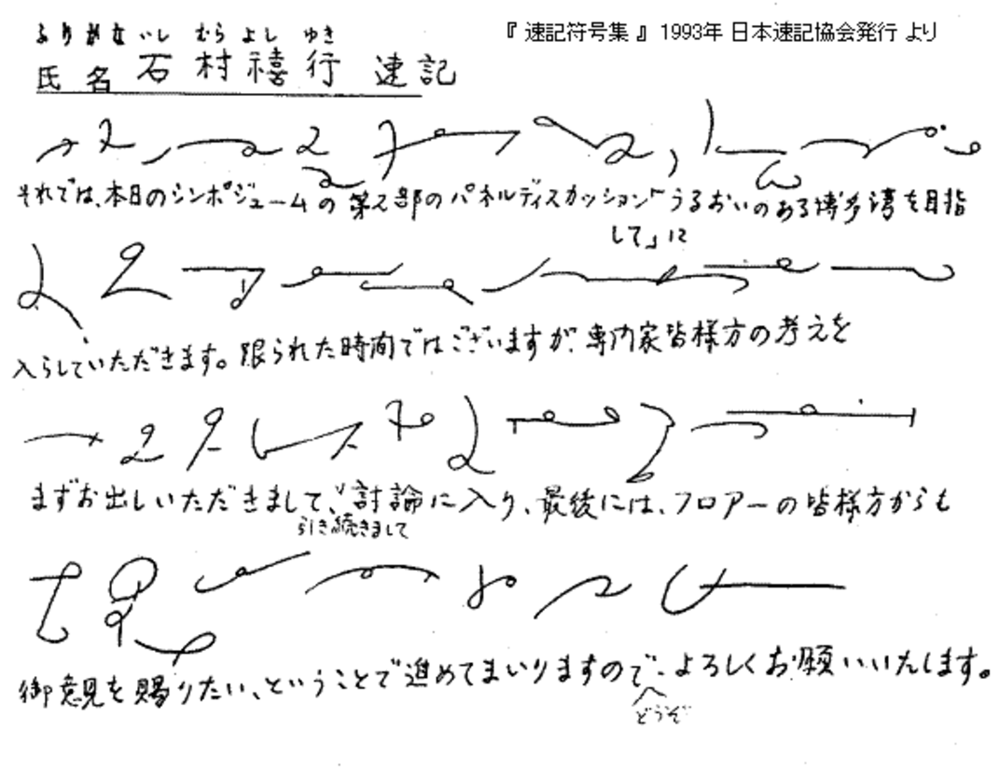 『 速記符号集 』 1993年 日本速記協会発行 より
ふりがな いし むら よし ゆき
氏名 石村禧行 速記
それでは、本日のシンポジュームの第2部のパネルディスカッション「うるおいのある博多湾を目指
して」に
入らしていただきます。限られた時間ではございますが、専門家皆様方の考えを
まずお出しいただきまして、討論に入り、最後には、フロアーの皆様方からも
引き続きまして
御意見を賜りたい、ということで進めてまいりますので、よろしくお願いいたします。
どうぞ